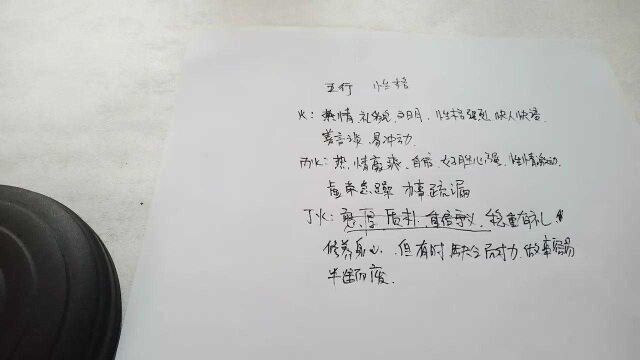 五行 性格
火：热情 礼貌 文明，性格强烈 快人快语
善言谈，易冲动
丙火：热情豪爽，自信 好胜心强，性情激动，
虚荣急躁 办事疏漏
丁火：质朴 自信守义，稳重有礼
修养身心，但有时缺乏 动力，做事容易
半途而废